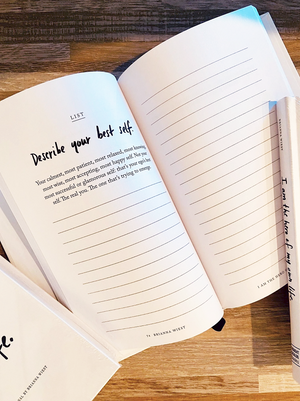 LIST
Describe your best self.
Your calmest, most patient, most relaxed, most honest,
most wise, most accepting, most happy self. Not your
most successful or glamorous self: that's your ego's best
self. The real you. The one that's trying to emerge.
BRIANNA WIEST
I AM THE
I am the hero of my own life.
BY BRIANNA WIEST